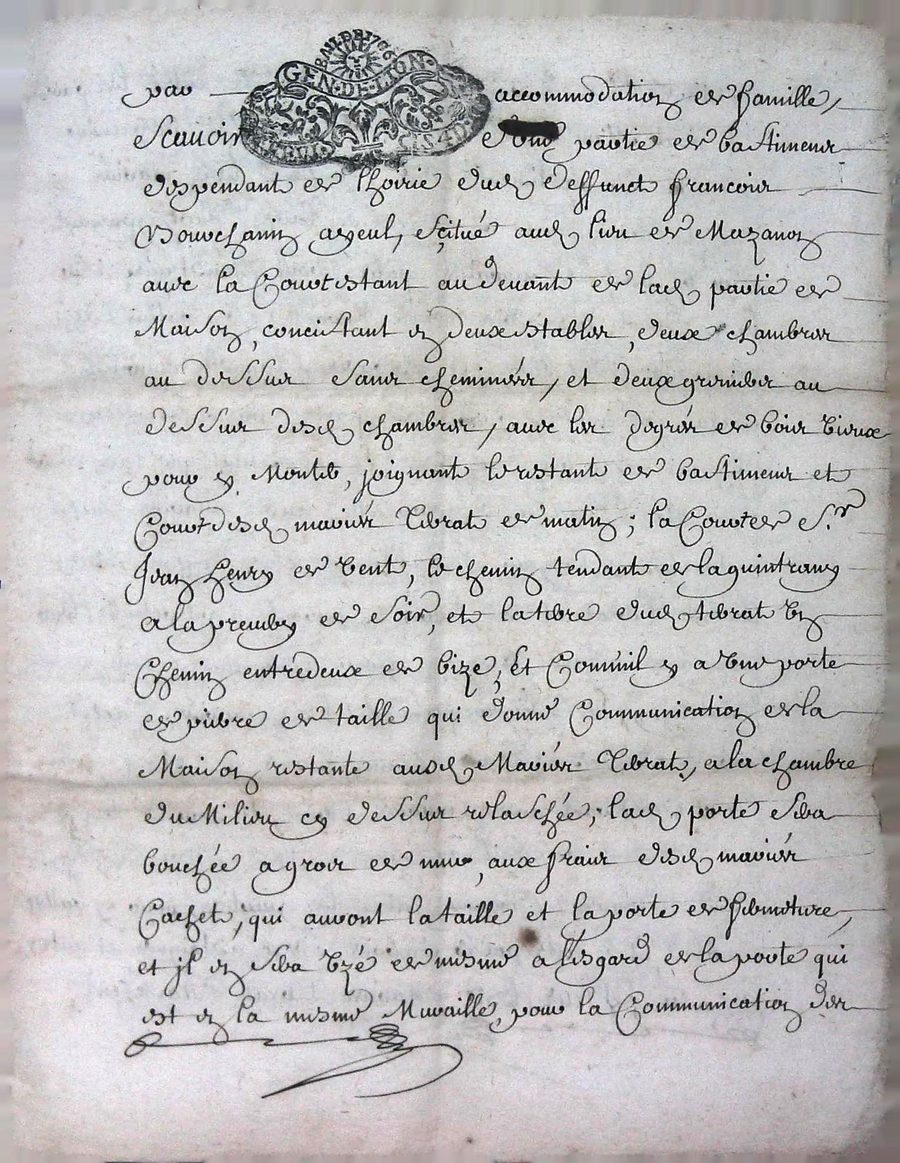 BAIL DE 1756
GEN·DE·LION
par accommodation de famille,
Scauoir d'une partie de bastiments
despendant de lhoirie dud deffunct francois
Bouchain ayeul, scitué aud lieu de Mazanon
auec la Cour estant au deuant de lad partie de
Maison, concistant en deux estables, deux chambres
au dessus sans cheminées, et deux greniers au
dessus desd chambres, auec les degrés de bois vieux
pour y Monter, joignant le restant de bastiments et
Cour desd mariés Tibrat de matin; la Cour de Sr
Jean Henry de vent, le chemin tendant de la quintrany
a la de soir, et la terre dud tibrat un
Chemin entredeux de bize, Et Comm'il y a une porte
de pierre de taille qui donne Communication de la
Maison restante ausd Mariés Tibrat, a la chambre
du Milieu cy dessus relaschée; lad porte sera
bouchée a gros de mur, aux frais desd mariés
Cachet, qui auront la taille et la porte de fermeture,
et jl en sera uzé de mesme a l'esgard de la porte qui
est en la mesme Muraille, pour la Communication des